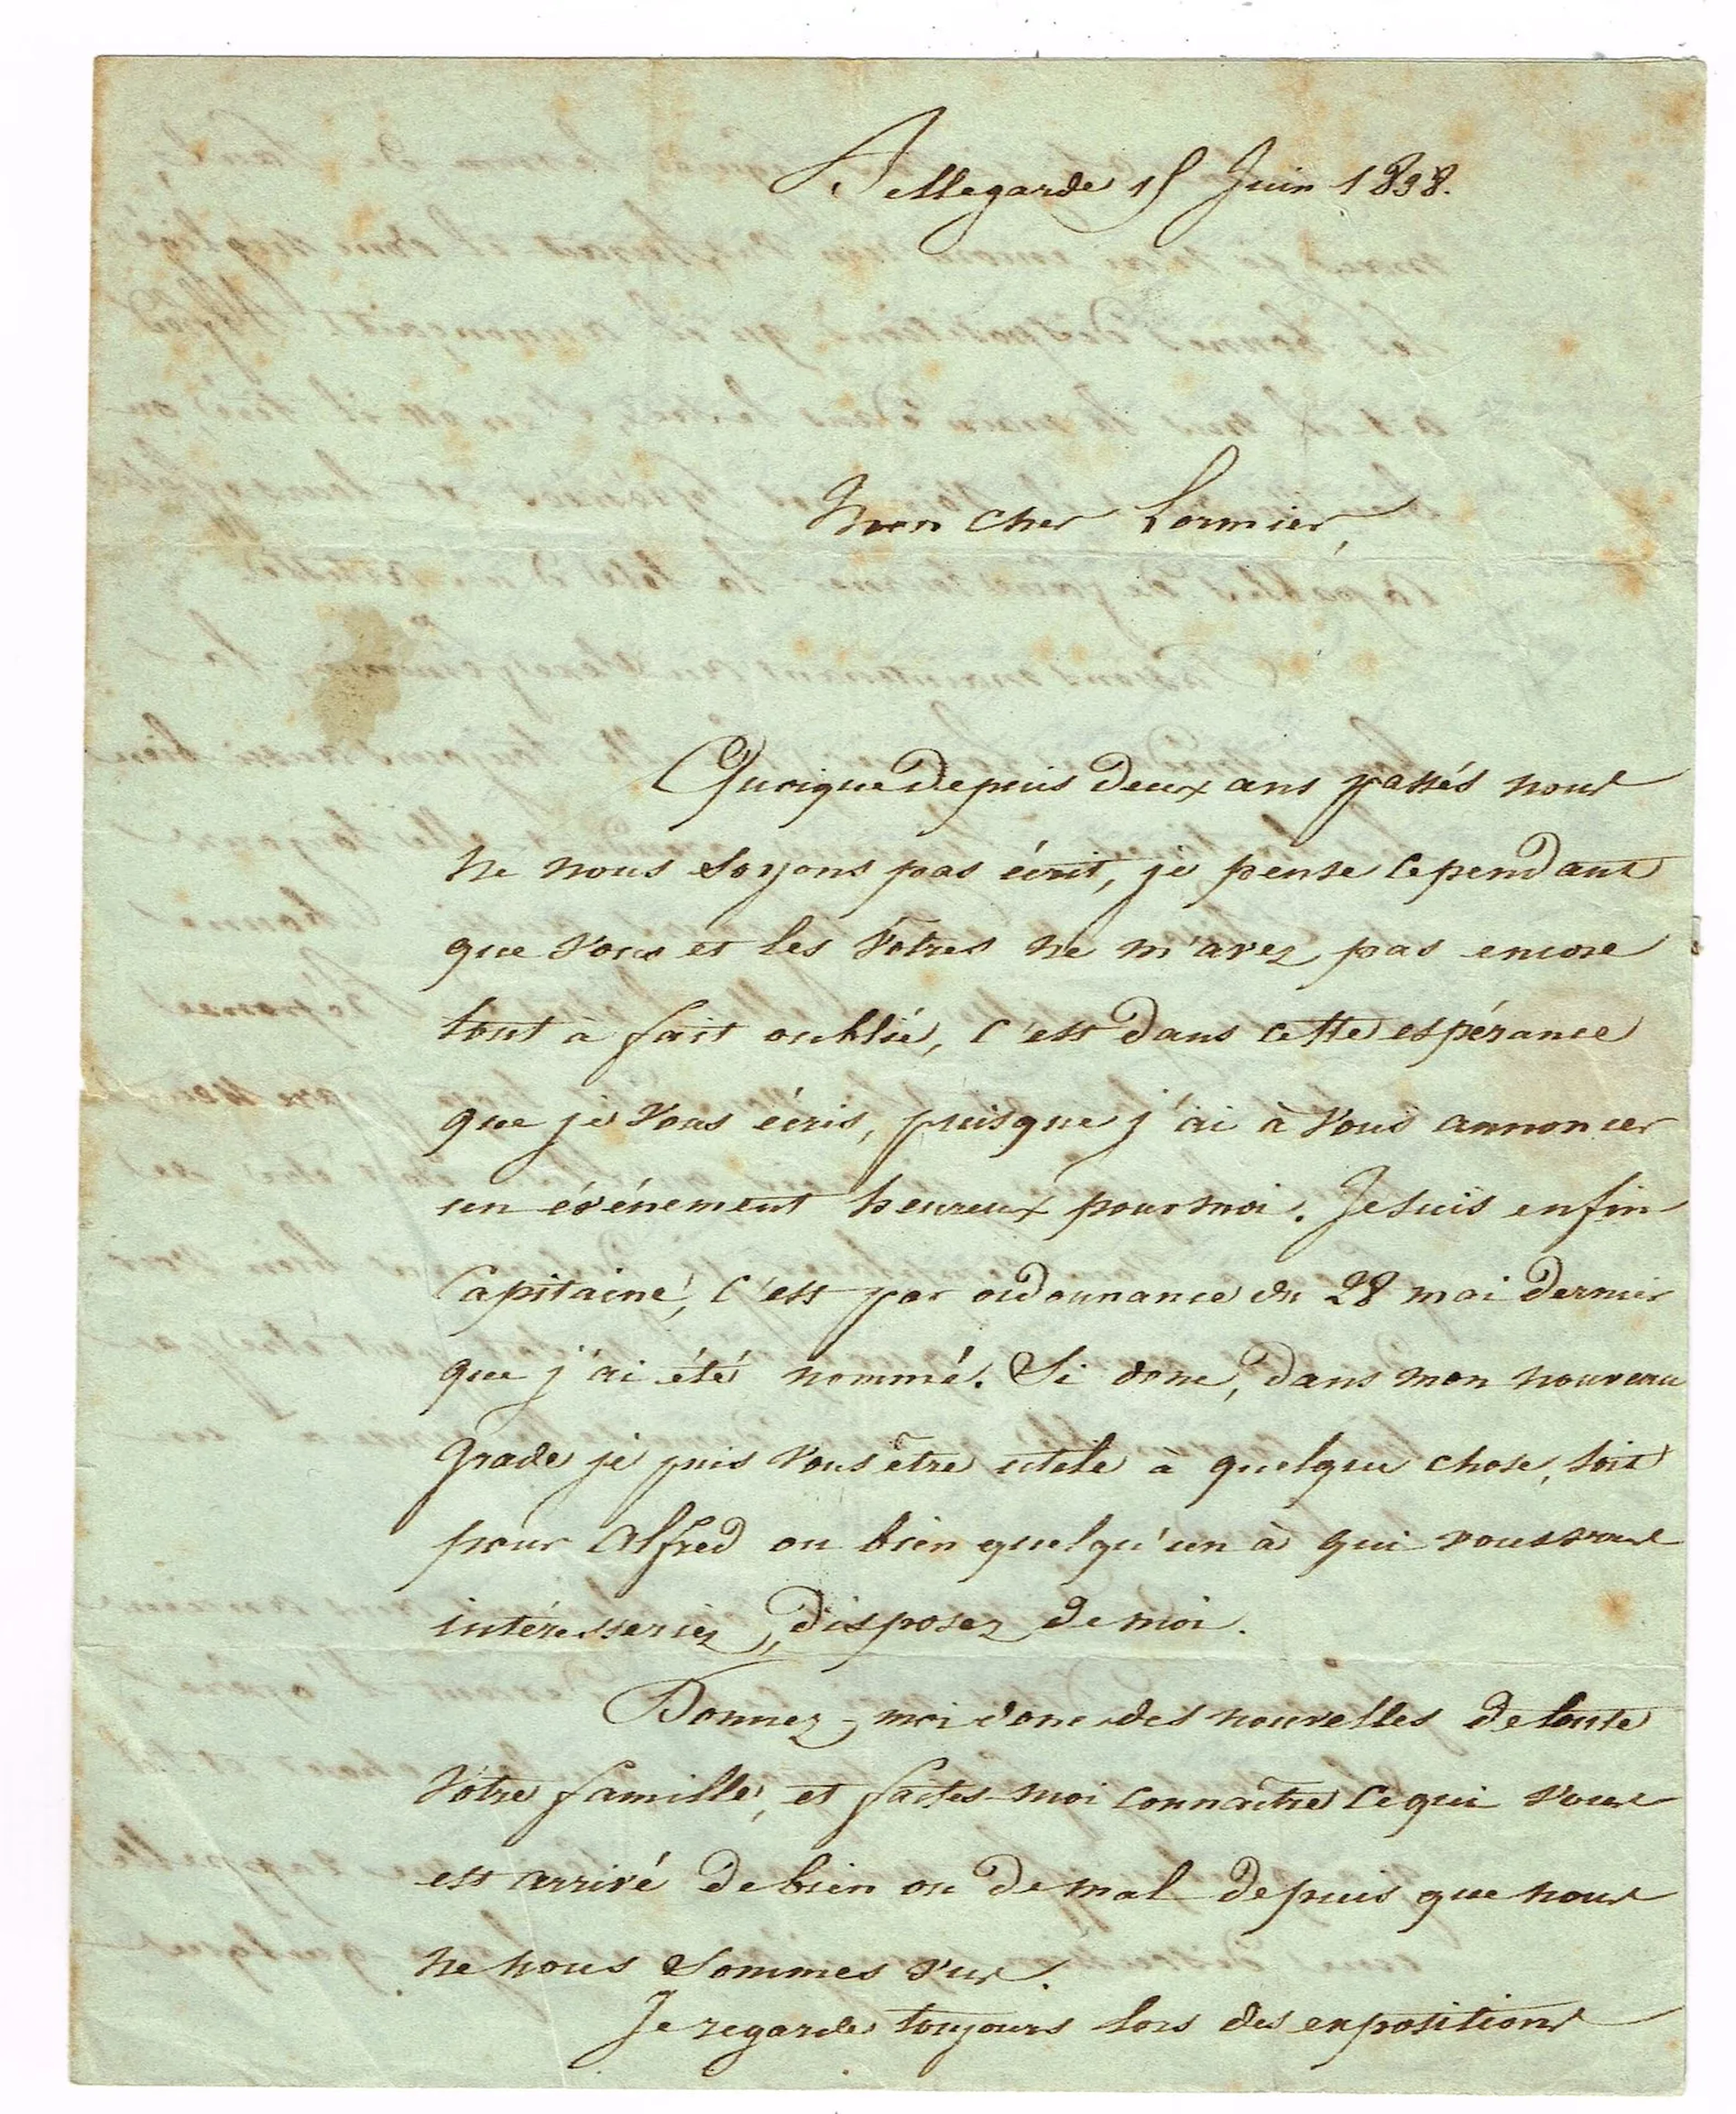 Bellegarde 15 Juin 1838.
Mon cher Lormier,
Quoique depuis deux ans passés nous
ne nous soyons pas écrit, je pense cependant
que vous et les vôtres ne m'avez pas encore
tout à fait oublié, c'est dans cette espérance
que je vous écris, puisque j'ai à vous annoncer
un événement heureux pour moi. Je suis enfin
Capitaine, c'est par ordonnance du 28 mai dernier
que j'ai été nommé. Si donc, dans mon nouveau
grade je puis vous être utile à quelque chose, soit
pour Alfred ou bien quelqu'un à qui vous vous
intéresseriez, disposez de moi.
Donnez-moi donc des nouvelles de toute
votre famille, et faites-moi connaître ce qui vous
est arrivé de bien ou de mal depuis que nous
ne nous sommes vus.
Je regarde toujours lors des expositions